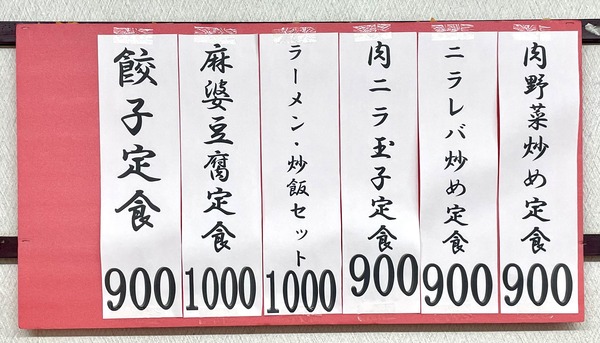 肉野菜炒め定食 900
ニラレバ炒め定食 900
肉ニラ玉子定食 900
ラーメン・炒飯セット 1000
麻婆豆腐定食 1000
餃子定食 900